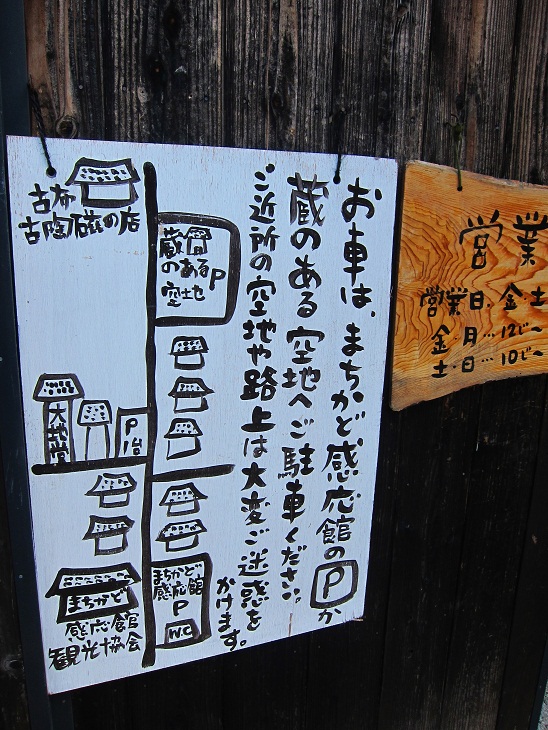 お車は、まちかど感応館のPか
蔵のある空地へご駐車ください。
ご近所の空地や路上は大変ご迷惑を
かけます。
古布
古陶磁の店
蔵
のあるP
空土也
大地堂
P
まちかど
感応館
P
WC
まちかど
感応館
観光協会
営業
営業日:金・土
金・月…12じ〜
土・日…10じ〜